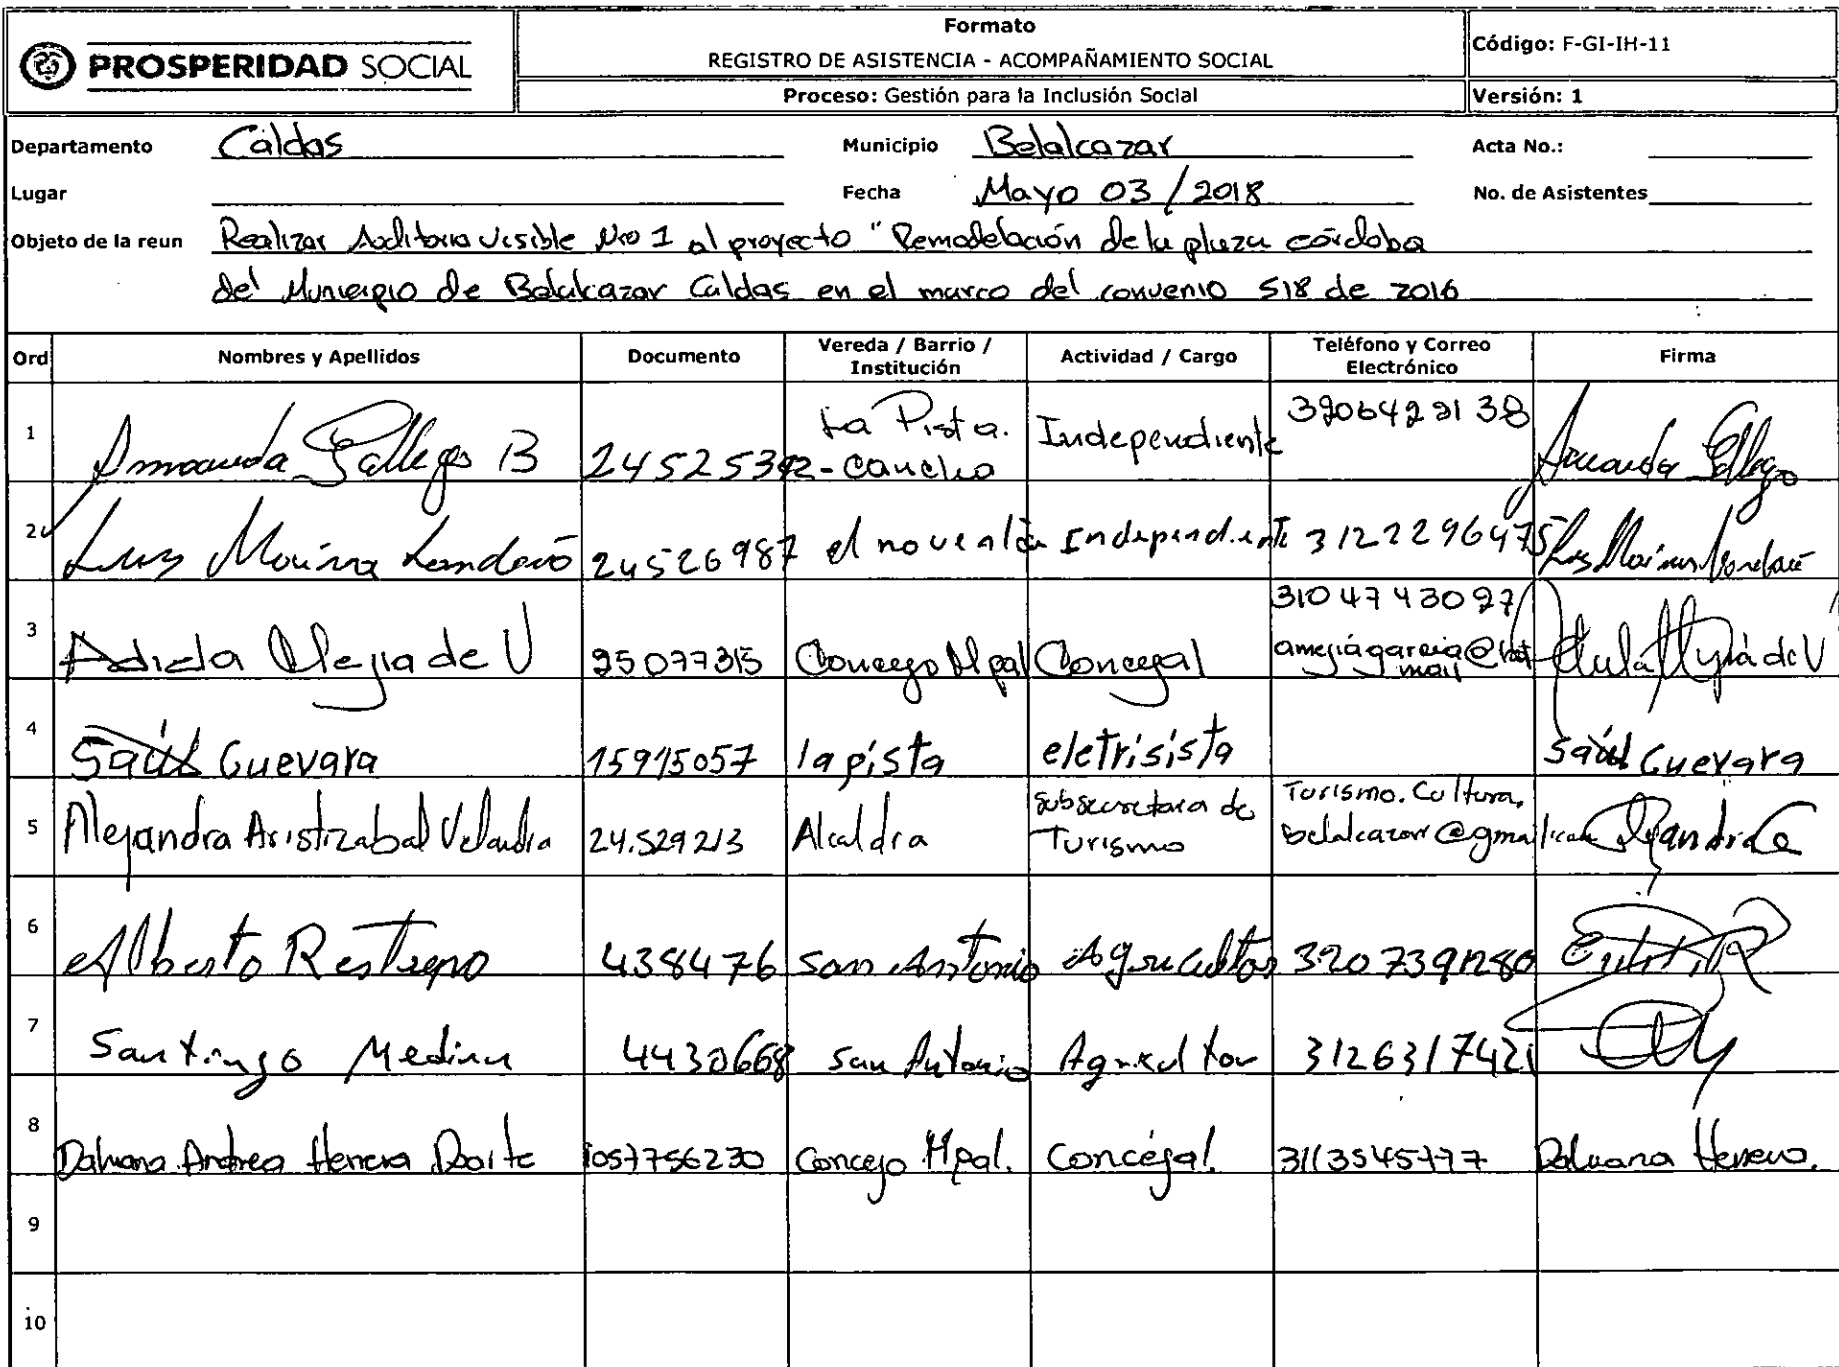 PROSPERIDAD SOCIAL
Formato
REGISTRO DE ASISTENCIA - ACOMPAÑAMIENTO SOCIAL
Proceso: Gestión para la Inclusión Social
Código: F-GI-IH-11
Versión: 1
Departamento Caldas Municipio Belalcazar Acta No.:
Lugar Fecha Mayo 03/2018 No. de Asistentes
Objeto de la reun Realizar Auditoria Visible Nro 1 al proyecto "Remodelación de la plaza córdoba
del Municipio de Belalcazar Caldas en el marco del convenio 518 de 2016
Ord Nombres y Apellidos Documento Vereda / Barrio / Institución Actividad / Cargo Teléfono y Correo Electrónico Firma
1 Amanda Gallego B La Pista. - Cancha Independiente Amanda Gallego
2 Luz Marina Londoño 24526987 Independiente 3122296475 Luz Marina Londoño
3 Adiela Mejia de V 25077315 Concejo Mpal Concejal 3104743097 Adiela Mejia de V
4 Saúl Guevara 15915057 la pista eletrisista Saúl Guevara
5 Alejandra Aristizabal Velandia 24.529213 Alcaldia Subsecretara de Turismo Turismo.Cultura. belalcazar@gmail.com
6 Alberto Restrepo 438476 San Antonio Agricultor
7 Santiago Medina 4430668 San Antonio Agricultor 3126317421
8 Daluana Andrea Herrera 1057756230 Concejo Mpal. Concejal. 3113545777 Daluana Herrera.
9
10